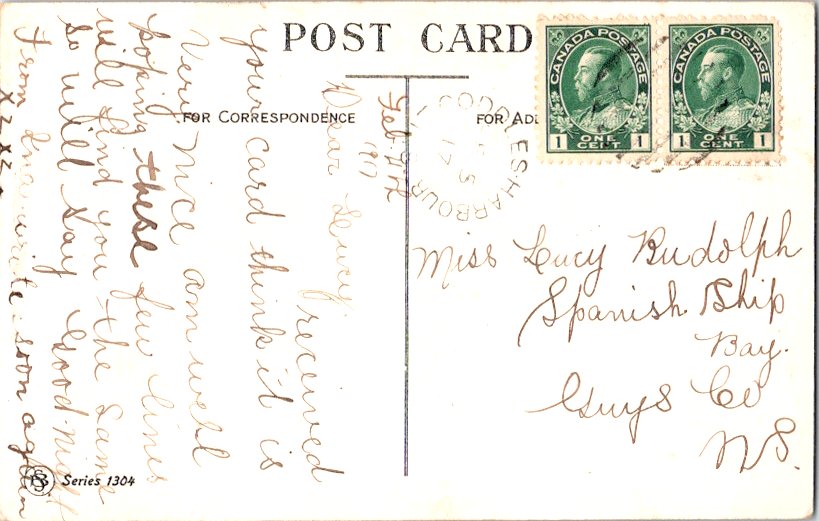 POST CARD
FOR CORRESPONDENCE
FOR AD
CANADA POSTAGE
1 ONE CENT 1
CANADA POSTAGE
1 ONE CENT 1
ESHARBOUR
17
Feb
1917
Dear Lucy
received
your card think it is
Very Nice am well
hoping these few lines
will find you the same
so will say Good-night
From
write soon again
x x x
Miss Lucy Rudolph
Spanish Ship
Bay.
Guys Co
N.S.
Series 1304